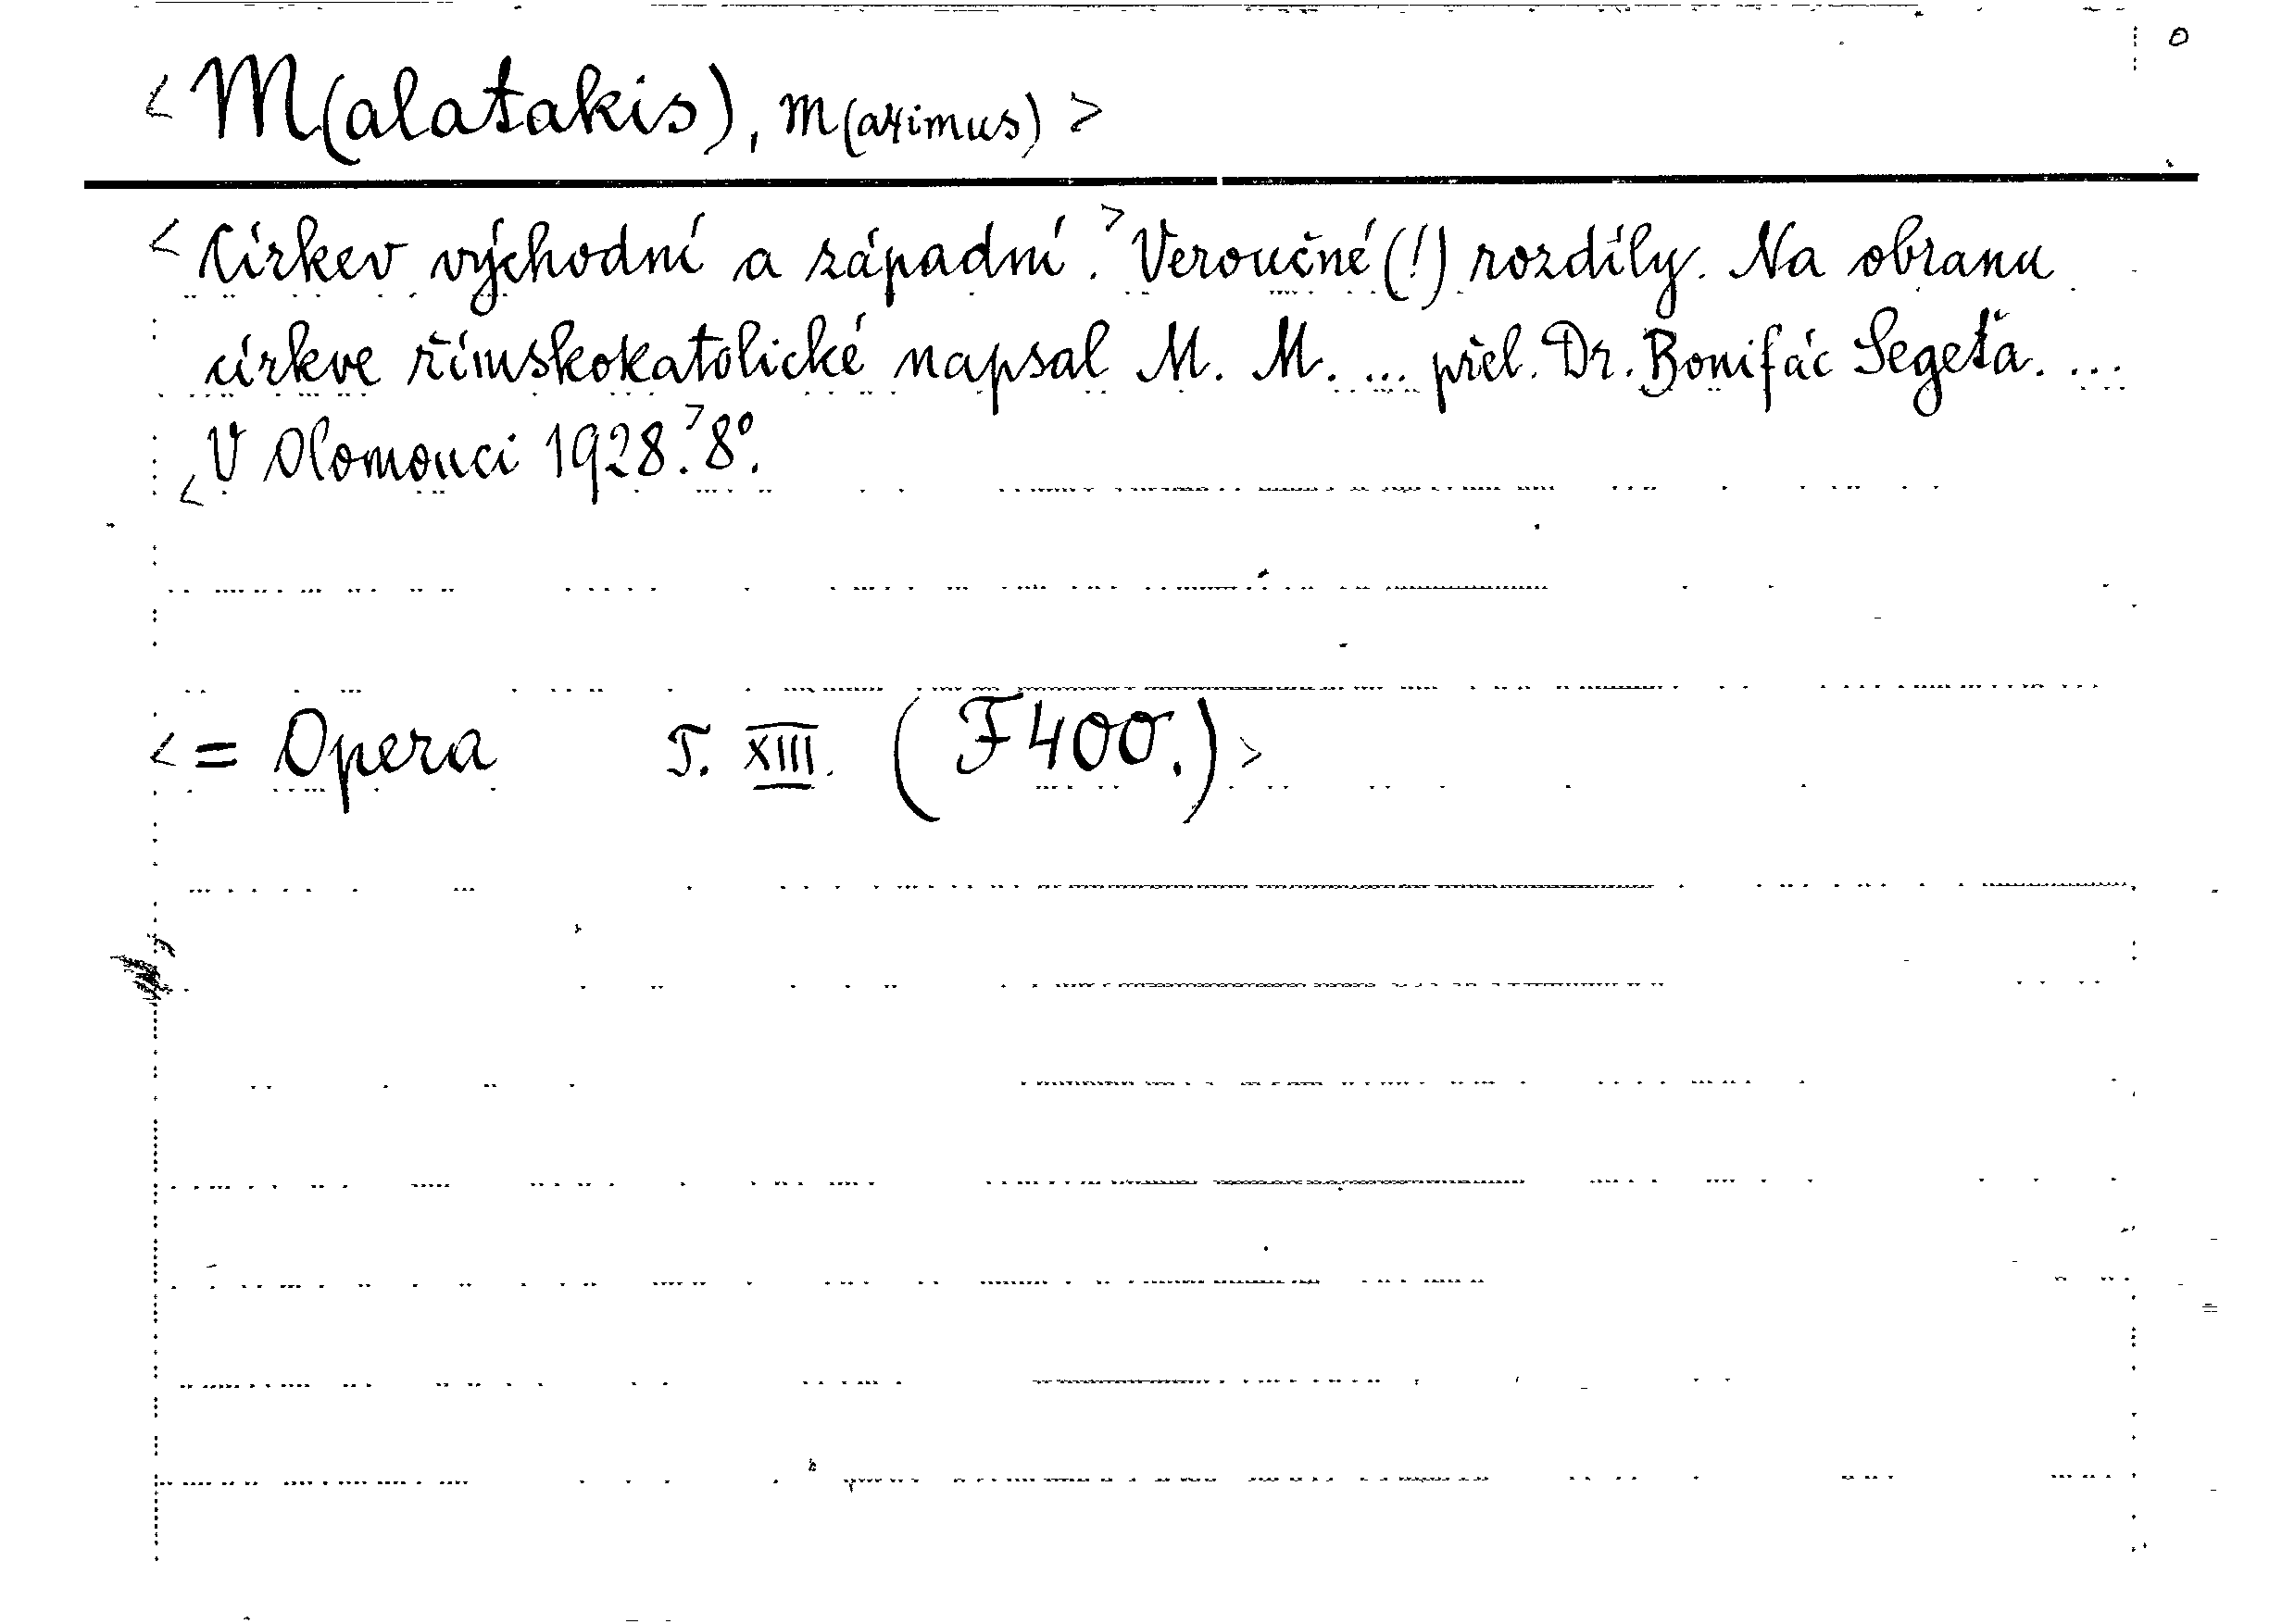 <M(alatakis), M(aximus)>
<Církev východní a západní.> Veroučné(!) rozdíly. Na obranu
církve římskokatolické napsal M. M. ... přel. Dr. Bonifác Segeťa. ...
<V Olomouci 1928.> 8°.
<= Opera T. XIII. (F 400.)>